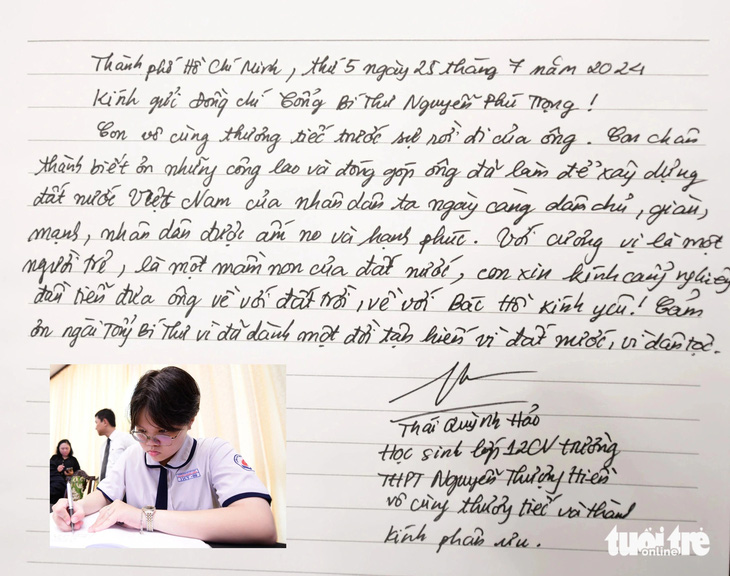 Thành phố Hồ Chí Minh, thứ 5 ngày 25 tháng 7 năm 2024
Kính gửi đồng chí Cổng Bí Thư Nguyễn Phú Trọng!
Con vô cùng thương tiếc trước sự rời đi của ông. Con chân
thành biết ơn những công lao và đóng góp ông đã làm để xây dựng
đất nước Việt Nam của nhân dân ta ngày càng dân chủ, giàu,
mạnh, nhân dân được ấm no và hạnh phúc. Với cương vị là một
người trẻ, là một mầm non của đất nước, con xin kính cẩn nghiêng
đầu tiễn đưa ông về với đất trời, về với Bác Hồ kính yêu! Cảm
ơn ngài Tổng Bí Thư vì đã dành một đời tận hiến vì đất nước, vì dân tộc.
Thái Quỳnh Hảo
Học sinh lớp 12CV trường
THPT Nguyễn Thượng Hiền
vô cùng thương tiếc và thành
kính phân ưu.
tuổi trẻ
online